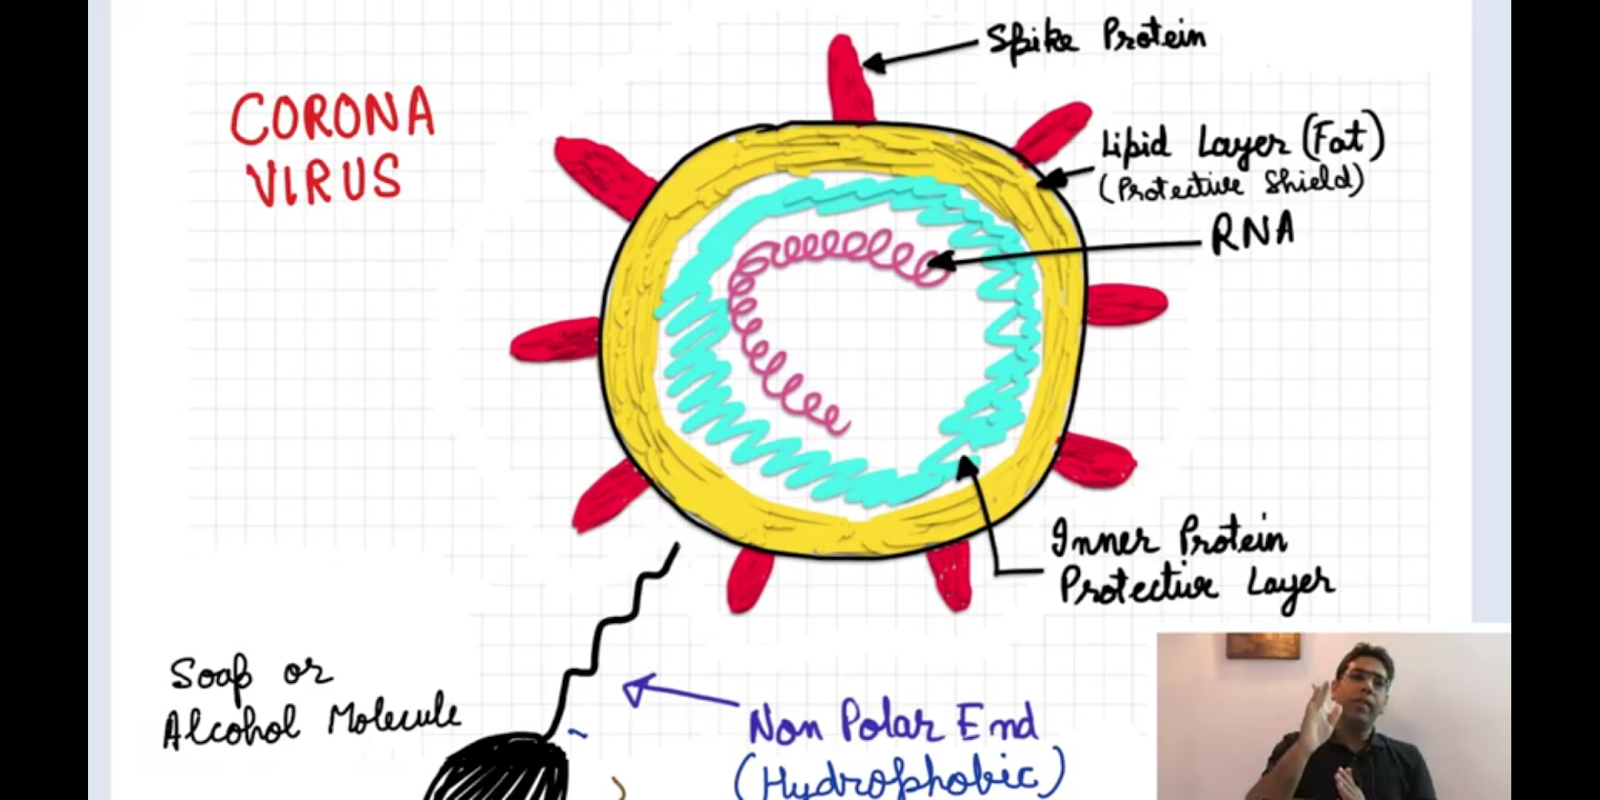 CORONA
VIRUS
Spike Protein
Lipid Layer (Fat)
(Protective Shield)
RNA
Inner Protein
Protective Layer
Soap or
Alcohol Molecule
Non Polar End
(Hydrophobic)